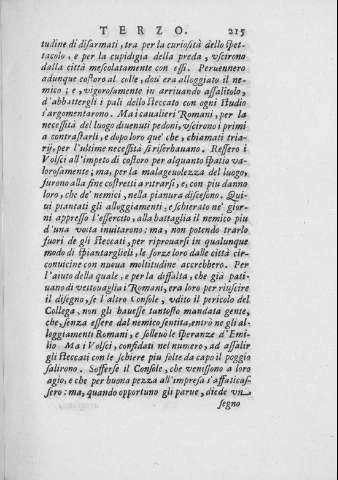 TERZO. 215
tudine di disarmati, tra per la curiosità dello spet-
tacolo, e per la cupidigia della preda, uscirono
dalla città mescolatamente con essi. Peruennero
adunque costoro al colle, dou' era alloggiato il ne-
mico; e, vigorosamente in arriuando assalitolo,
d'abbattergli i pali dello steccato con ogni studio
s'argomentarono. Ma i caualieri Romani, per la
necessità del luogo diuenuti pedoni, vscirono i primi
a contrastarli, e dopo loro que' che, chiamati tria-
rij, per l'ultime necessità si riserbauano. Ressero i
Volsci all'impeto di costoro per alquanto spatio va-
lorosamente; ma, per la malageuolezza del luogo,
furono alla fine costretti a ritrarsi, e, con piu danno
loro, che de' nemici, nella pianura discesono. Qui-
ui piantati gli alloggiamenti, e schierato ne' gior-
ni appresso l'essercito, alla battaglia il nemico piu
d'una volta inuitarono: ma, non potendo trarlo
fuori de gli steccati, per riprouarsi in qualunque
modo di spiantarglieli, le forze loro dalle città cir-
conuicine con nuoua moltitudine accrebbero. Per
l'aiuto della quale, e per la diffalta, che già pati-
uano di vettouaglia i Romani, era loro per riuscire
il disegno, se l'altro Console, vdito il pericolo del
Collega, non gli hauesse tantosto mandata gente,
che, senza essere dal nemico sentita, entrò ne gli al-
loggiamenti Romani, e solleuò le speranze d'Emi-
lio. Ma i Volsci, confidati nel numero, ad assalir
gli steccati con le schiere piu folte da capo il poggio
salirono. Sofferse il Console, che venissono a loro
agio, e che per buona pezza all'impresa s'affaticas-
sero: ma, quando opportuno gli parue, diede vn
segno